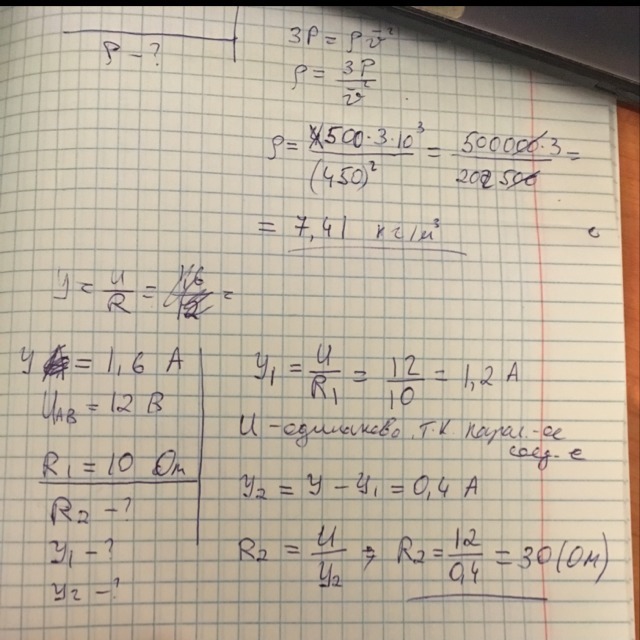 ρ - ?
3P = ρ v̄²
ρ = 3P / v̄²
ρ = 500·3·10³ / (450)² = 500000·3 / 202500 =
= 7,41 кг/м³
У = U / R =
У = 1,6 А
U_AB = 12 В
R₁ = 10 Ом
R₂ - ?
У₁ - ?
У₂ - ?
У₁ = U / R₁ = 12 / 10 = 1,2 А
U - одинаково, т.к парал-ое
соед-е
У₂ = У - У₁ = 0,4 А
R₂ = U / У₂ ⇒ R₂ = 12 / 0,4 = 30 (Ом)